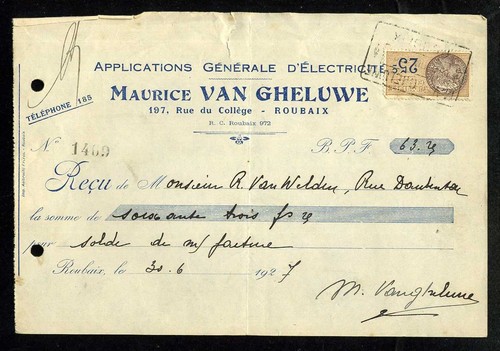 APPLICATIONS GÉNÉRALE D'ÉLECTRICITÉ
25
MAURICE VAN GHELUWE
197, Rue du Collège - ROUBAIX
R. C. Roubaix 972
TÉLÉPHONE 185
No 1469 B. P. F. 63.25
Reçu de Monsieur R. Van Welden, Rue
la somme de soixante trois frs 25
pour solde de m/ facture
Roubaix, le 30.6 1927
M. Vangheluwe